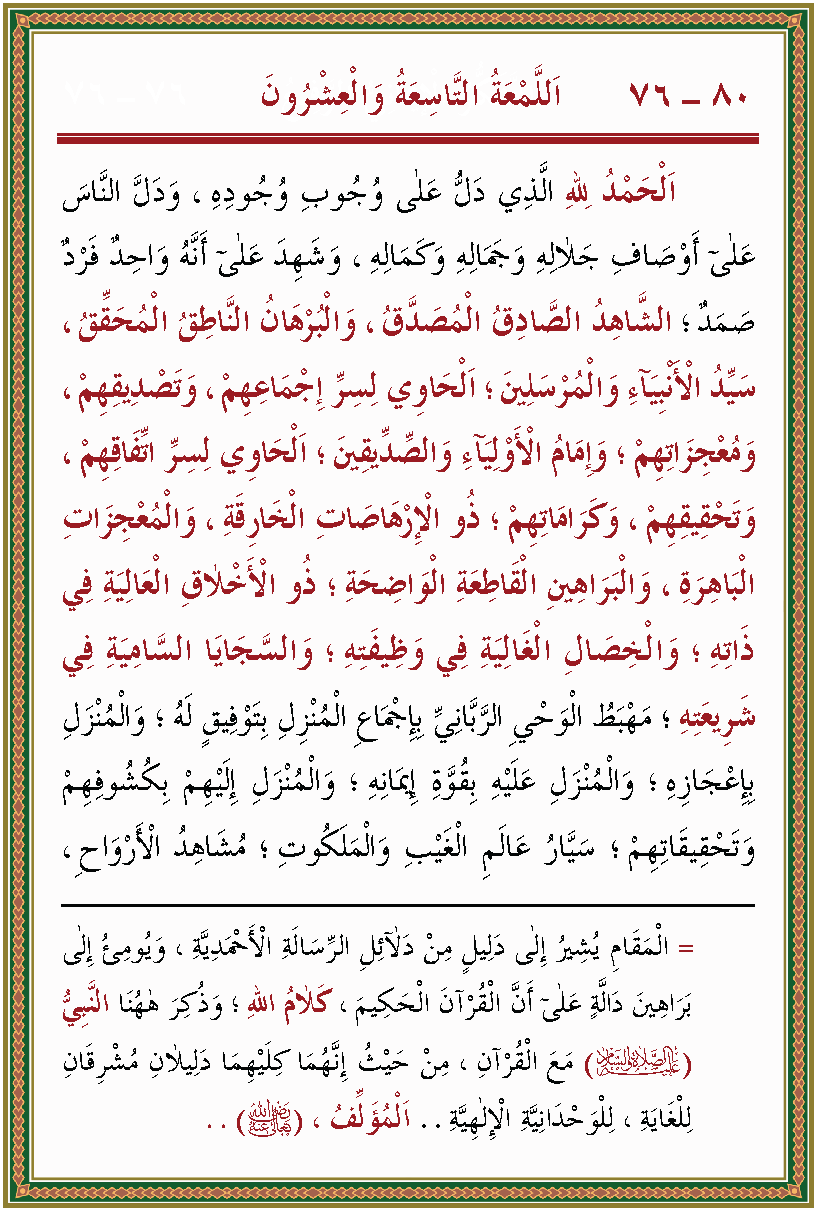 ٨٠ – ٧٦ اَللَّمْعَةُ التَّاسِعَةُ وَالْعِشْرُونَ
اَلْحَمْدُ لِلّٰهِ الَّذِي دَلُّ عَلٰى وُجُوبِ وُجُودِهِ ، وَدَلَّ النَّاسَ
عَلٰىٓ أَوْصَافِ جَلَالِهِ وَجَمَالِهِ وَكَمَالِهِ ، وَشَهِدَ عَلٰىٓ أَنَّهُ وَاحِدٌ فَرْدٌ
صَمَدٌ ؛ الشَّاهِدُ الصَّادِقُ الْمُصَدَّقُ ، وَالْبُرْهَانُ النَّاطِقُ الْمُحَقِّقُ ،
سَيِّدُ الْأَنْبِيَآءِ وَالْمُرْسَلِينَ ؛ اَلْحَاوِي لِسِرِّ إِجْمَاعِهِمْ ، وَتَصْدِيقِهِمْ ،
وَمُعْجِزَاتِهِمْ ؛ وَإِمَامُ الْأَوْلِيَآءِ وَالصِّدِّيقِينَ ؛ اَلْحَاوِي لِسِرِّ اتِّفَاقِهِمْ ،
وَتَحْقِيقِهِمْ ، وَكَرَامَاتِهِمْ ؛ ذُو الْإِرْهَاصَاتِ الْخَارِقَةِ ، وَالْمُعْجِزَاتِ
الْبَاهِرَةِ ، وَالْبَرَاهِينِ الْقَاطِعَةِ الْوَاضِحَةِ ؛ ذُو الْأَخْلَاقِ الْعَالِيَةِ فِي
ذَاتِهِ ؛ وَالْخِصَالِ الْغَالِيَةِ فِي وَظِيفَتِهِ ؛ وَالسَّجَايَا السَّامِيَةِ فِي
شَرِيعَتِهِ ؛ مَهْبَطُ الْوَحْيِ الرَّبَّانِيِّ بِإِجْمَاعِ الْمُنْزِلِ بِتَوْفِيقٍ لَهُ ؛ وَالْمُنْزَلِ
بِإِعْجَازِهِ ؛ وَالْمُنْزَلِ عَلَيْهِ بِقُوَّةِ إِيمَانِهِ ؛ وَالْمُنْزَلِ إِلَيْهِمْ بِكُشُوفِهِمْ
وَتَحْقِيقَاتِهِمْ ؛ سَيَّارُ عَالَمِ الْغَيْبِ وَالْمَلَكُوتِ ؛ مُشَاهِدُ الْأَرْوَاحِ ،
= الْمَقَامِ يُشِيرُ إِلٰى دَلِيلٍ مِنْ دَلَآئِلِ الرِّسَالَةِ الْأَحْمَدِيَّةِ ، وَيُومِئُ إِلٰى
بَرَاهِينَ دَالَّةٍ عَلٰىٓ أَنَّ الْقُرْآنَ الْحَكِيمَ ، كَلَامُ اللهِ ؛ وَذُكِرَ هٰهُنَا النَّبِيُّ
(عَلَيْهِ الصَّلَاةُ وَالسَّلَامُ) مَعَ الْقُرْآنِ ، مِنْ حَيْثُ إِنَّهُمَا كِلَيْهِمَا دَلِيلَانِ مُشْرِقَانِ
لِلْغَايَةِ ، لِلْوَحْدَانِيَّةِ الْإِلٰهِيَّةِ .. اَلْمُؤَلِّفُ ، (رَضِيَ اللهُ تَعَالَى عَنْهُ) ..